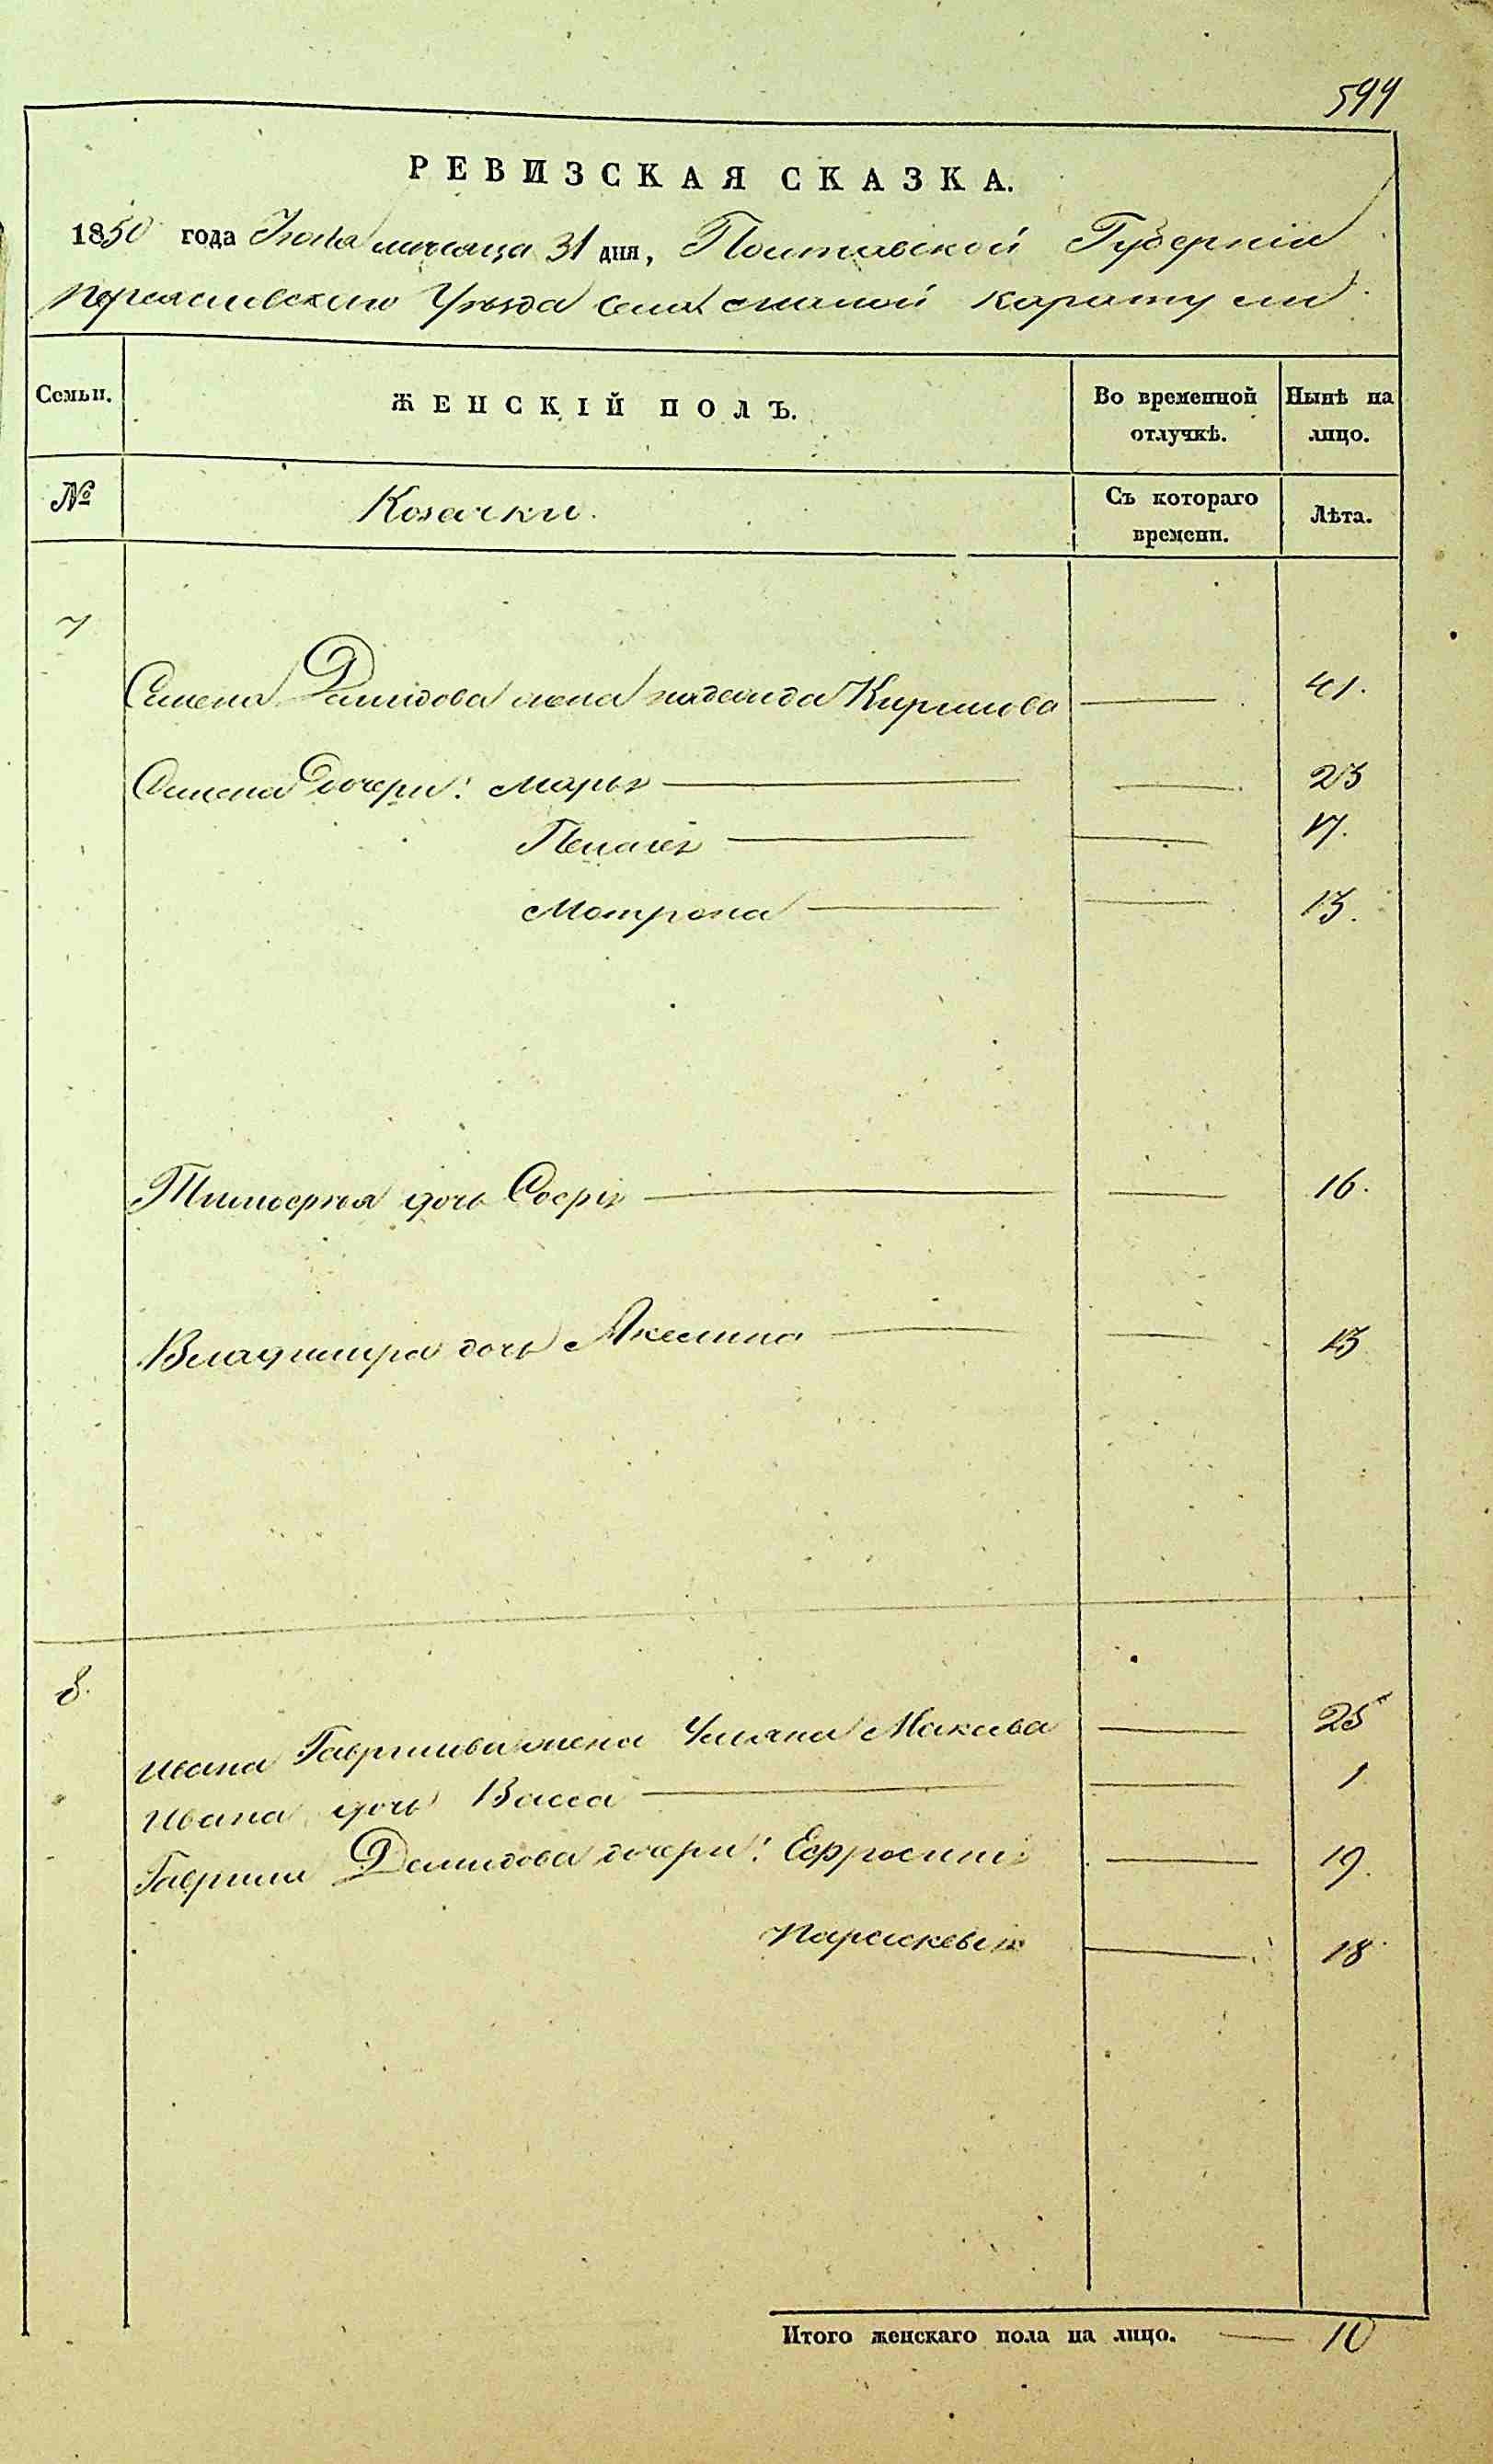 599
РЕВИЗСКАЯ СКАЗКА.
1850 года Іюля месяца 31 дня, Полтавской Губерніи
Переяславского Уезда села малой каратули
Семьи. ЖЕНСКІЙ ПОЛЪ. Во временной отлучкѣ. Нынѣ на лицо.
№ Козачки. Съ котораго времени. Лѣта.
7
Семена Демидова жена надежда Кирилова 41.
Семена Дочери: марья 23
Пелагея 17.
Мотрона 13.
Тимофея дочь Софія 16.
Владимира дочь Акелина 13
8.
Ивана Гаврилова жена Уляна Макс 25
Ивана дочь Васса 1
Гаврила Демидова дочери: Ефросинія 19.
Параскевія 18
Итого женскаго пола на лицо. 10